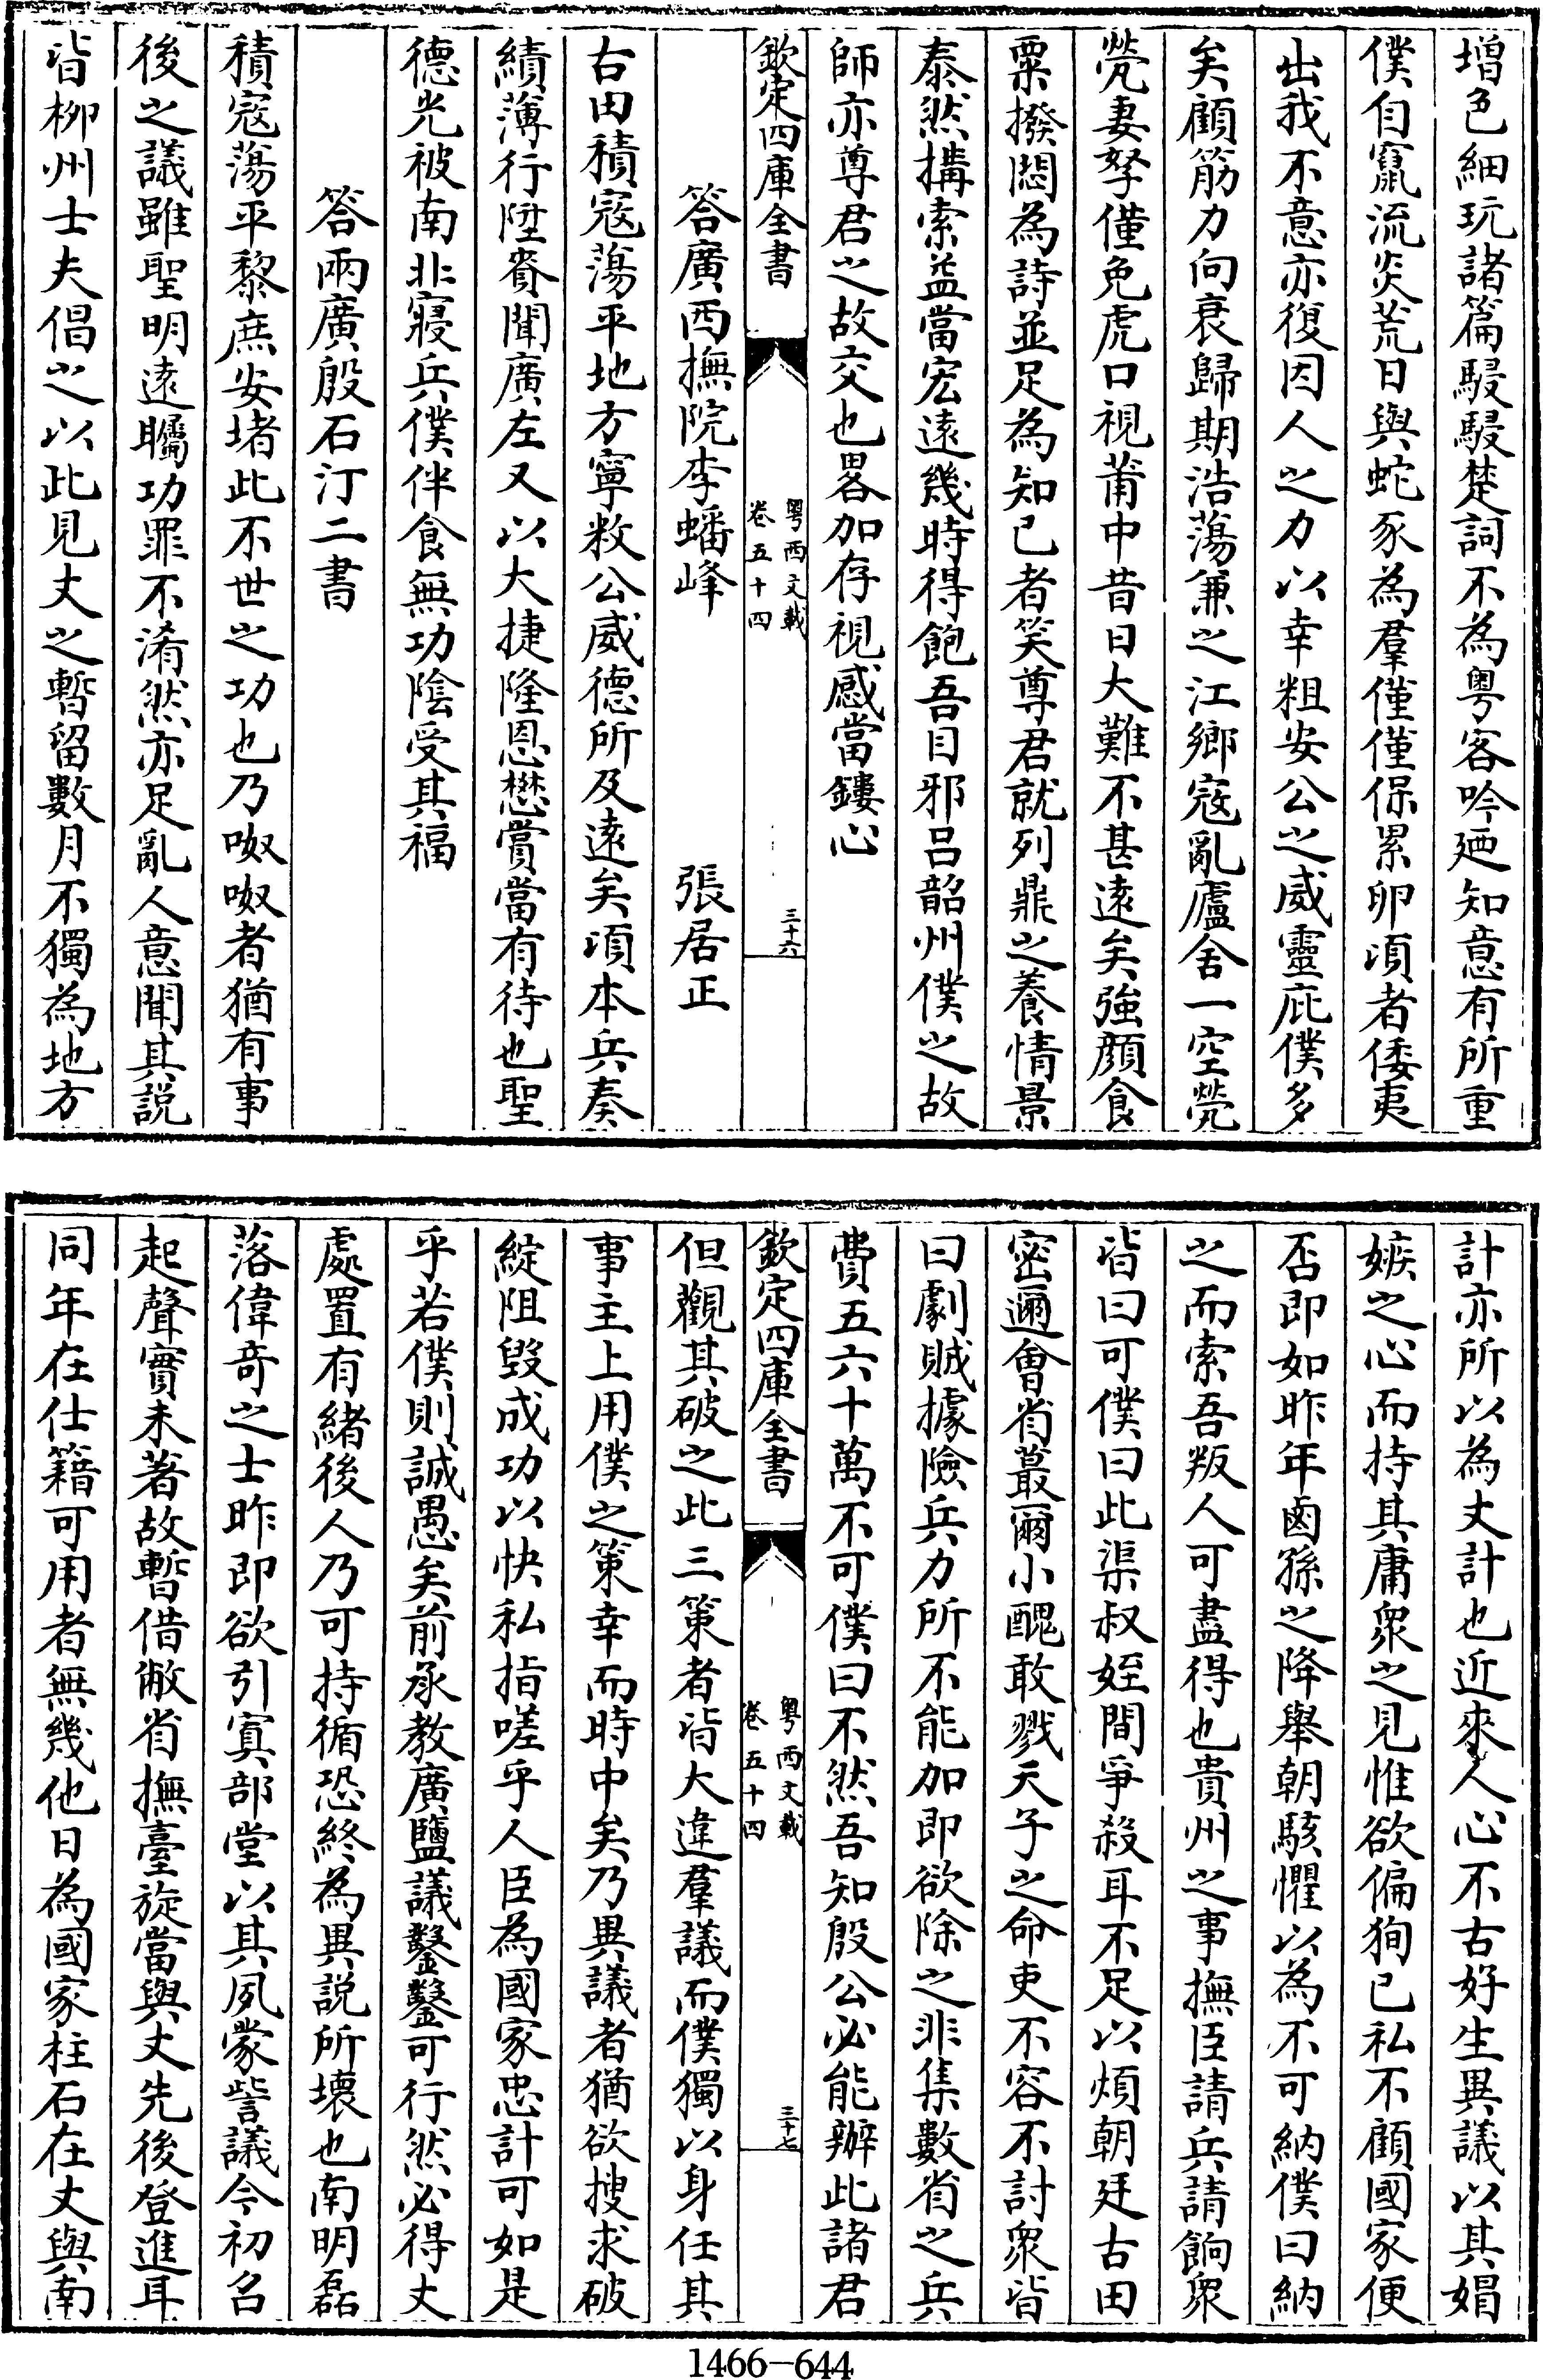 增色細玩諸篇駸駸楚詞不為粤客吟廼知意有所重
僕自竄流炎荒日與蛇豕為羣僅僅保累卵頃者倭夷
出我不意亦復因人之力以幸粗安公之威靈庇僕多
矣顧筋力向衰歸期浩蕩兼之江鄉寇亂廬舍一空煢
煢妻孥僅免虎口視莆中昔日大難不甚遠矣強顔食
粟撥悶為詩並足為知已者笑尊君就列鼎之養情景
泰然搆索益當宏遠幾時得飽吾目邪吕韶州僕之故
師亦尊君之故交也畧加存視感當鏤心
欽定四庫全書
粤西文載
卷五十四
三十六
答廣西撫院李蟠峰 張居正
古田積寇蕩平地方寧敉公威德所及遠矣項本兵奏
績薄行陞賚聞廣左又以大捷隆恩懋賞當有待也聖
德光被南北寢兵僕伴食無功陰受其福
答兩廣殷石汀二書
積寇蕩平黎庶安堵此不世之功也乃呶呶者猶有事
後之議雖聖明遠矚功罪不淆然亦足亂人意聞其説
皆柳州士夫倡之以此見丈之暫留數月不獨為地方
計亦所以為丈計也近來人心不古好生異議以其娼
嫉之心而持其庸衆之見惟欲偏狥已私不顧國家便
否即如昨年鹵孫之降舉朝駭懼以為不可納僕曰納
之而索吾叛人可盡得也貴州之事撫臣請兵請餉衆
皆曰可僕曰此渠叔姪間爭殺耳不足以煩朝廷古田
密邇會省蕞爾小醜敢戮天子之命吏不容不討衆皆
曰劇賊據險兵力所不能加即欲除之非集數省之兵
費五六十萬不可僕曰不然吾知殷公必能辦此諸君
欽定四庫全書
粤西文載
卷五十四
三十七
但觀其破之此三策者皆大違羣議而僕獨以身任其
事主上用僕之策幸而時中矣乃異議者猶欲搜求破
綻阻毁成功以快私指嗟乎人臣為國家忠計可如是
乎若僕則誠愚矣前承教廣鹽議鑿鑿可行然必得丈
處置有緒後人乃可持循恐終為異説所壊也南明磊
落偉奇之士昨即欲引寘部堂以其夙蒙訾議今初召
起聲實未著故暫借敝省撫臺旋當與丈先後登進耳
同年在仕籍可用者無幾他日為國家柱石在丈與南
1466-644